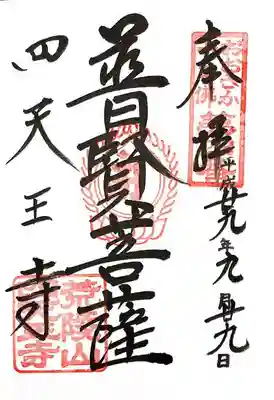 奉拝
平成廿九年九月廿九日
普賢菩薩
四天王寺
荒陵山
四天王寺